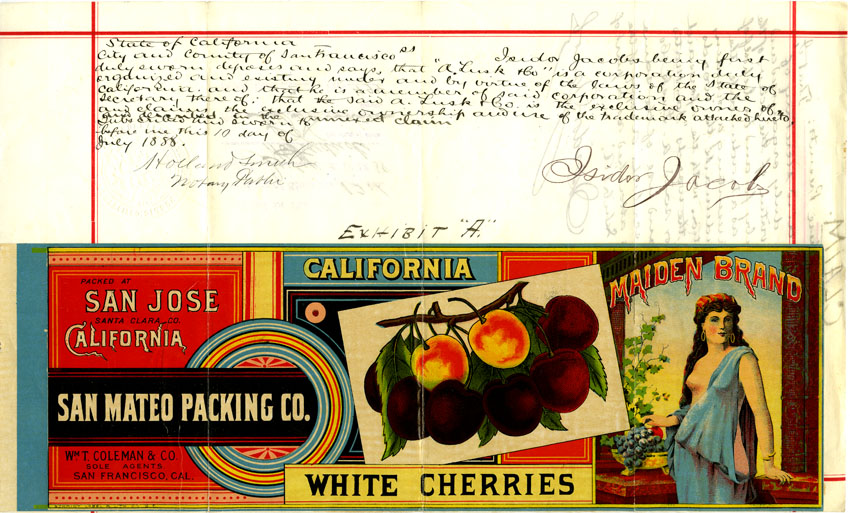 State of California
City and County of San Francisco ss Isidor Jacobs being first
duly sworn deposes and says, that "A. Lusk & Co" is a corporation duly
organized and existing under and by virtue of the laws of the State of
California, and that he is a member of said corporation and the
Secretary thereof. that the said A. Lusk & Co. is the exclusive owner of
and claims the exclusive ownership and use of the trademark attached hereto,
and described in the annexed claim
Subscribed and sworn to
before me this 10 day of
July 1888.
Holland Smith
Notary Public
Isidor Jacobs
EXHIBIT "A."
PACKED AT
SAN JOSE
SANTA CLARA CO.
CALIFORNIA
SAN MATEO PACKING CO.
WM T. COLEMAN & CO.
SOLE AGENTS
SAN FRANCISCO, CAL.
CALIFORNIA
WHITE CHERRIES
MAIDEN BRAND